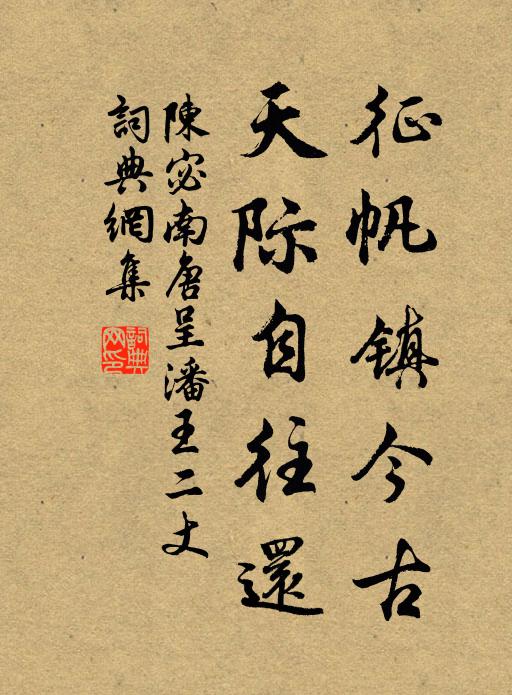 征帆镇今古
天际自往還
陳宓南唐呈潘王二丈
詞典網集
詞典网印